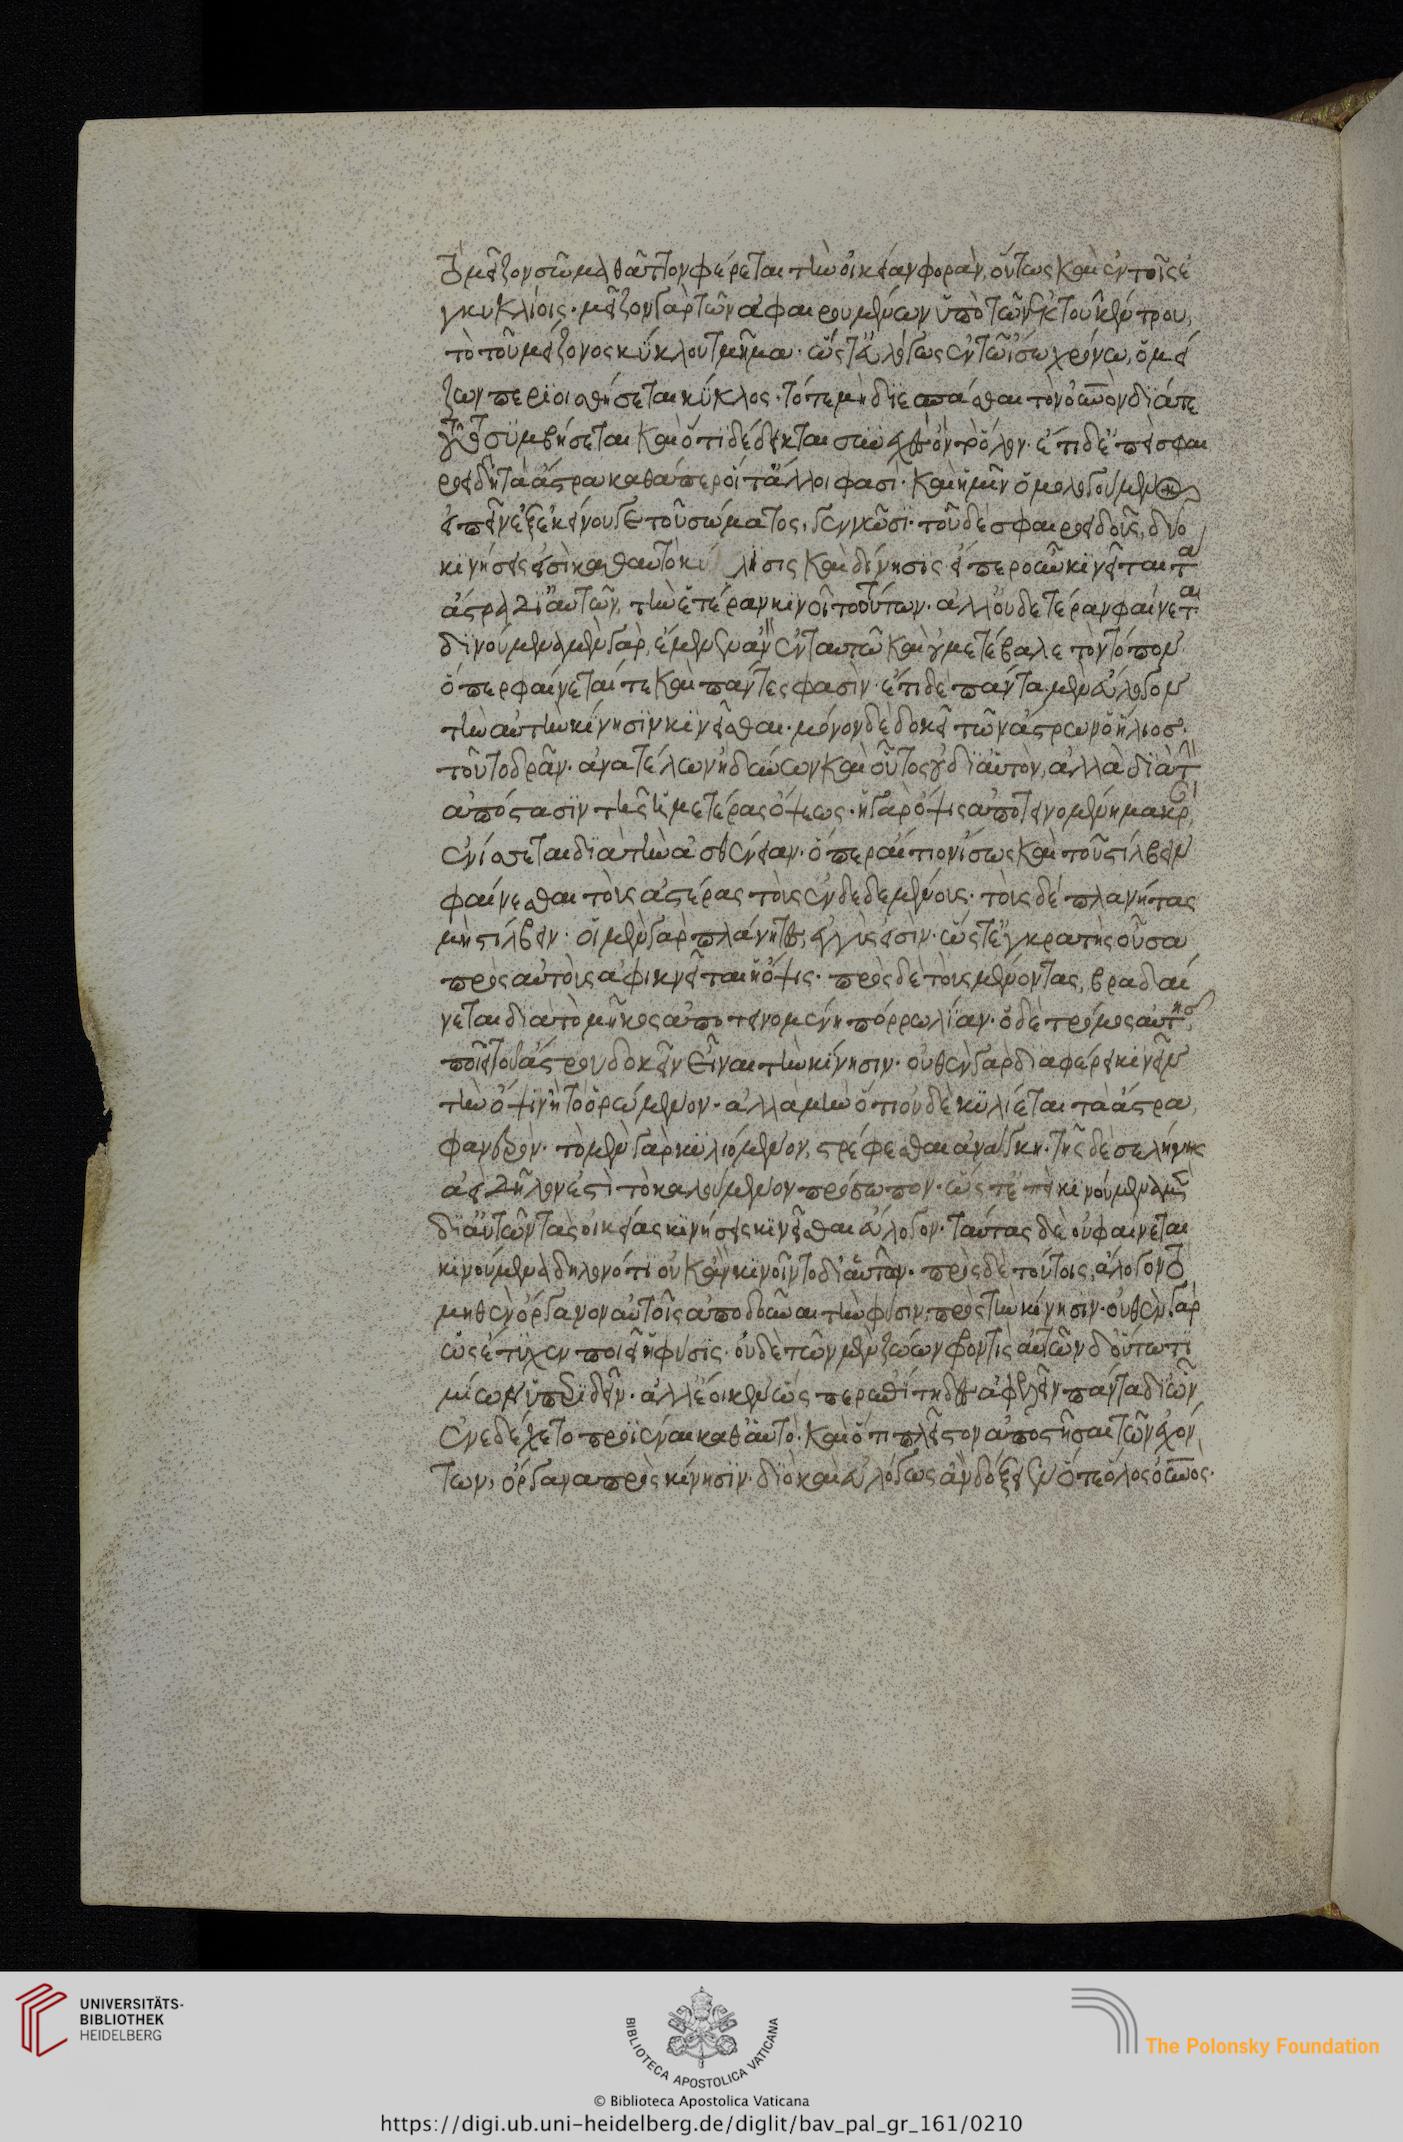 τὸ μεῖζον σῶμα θᾶττον φέρεται τὴν οἰκείαν φοράν, οὕτως καὶ ἐν τοῖς ἐ
γκυκλίοις· μεῖζον γὰρ τῶν ἀφαιρουμένων ὑπὸ τῶν ἐκ τοῦ κέντρου,
τὸ τοῦ μείζονος κύκλου τμῆμα· ὥστ' εὐλόγως ἐν τῶ ἴσω χρόνω, ὁ μεί
ζων περιοισθήσεται κύκλος· τό τε μὴ διεσπάσθαι τὸν οὐνον διά τε
τοῦτο συμβήσεται καὶ ὅτι δέδεικται συνεχὲς ὂν τὸ ὅλον· ἔτι δὲ ἐπεὶ σφαι
ροειδῆ τὰ ἄστρα καθάπερ οἵ τ' ἄλλοι φασὶ· καὶ ἡμῖν ὁμολογούμενον
εἰπεῖν ἐξ ἐκείνου γε τοῦ σώματος, γεννῶσι· τοῦ δὲ σφαιροειδοῦς, δύο
κινήσεις εἰσὶ καθ' αὑτὸ κύλισις καὶ δίνησις· εἴπερ οὖν κινεῖται τὰ
ἄστρα δι' αὑτῶν, τὴν ἑτέραν κινοῖτο τούτων· ἀλλ' οὐδετέραν φαίνεται·
δινούμενα μὲν γὰρ, ἔμενεν ἂν ἐν ταυτῶ καὶ οὐ μετέβαλε τὸν τόπον
ὅπερ φαίνεταί τε καὶ πάντες φασὶν· ἔτι δὲ πάντα μὲν εὔλογον
τὴν αὐτὴν κίνησιν κινεῖσθαι· μόνον δὲ δοκεῖ τῶν ἄστρων ὁ ἥλιος
τοῦτο δρᾶν· ἀνατέλλων ἢ δύνων καὶ οὗτος οὐ δι' αὑτὸν, ἀλλὰ διὰ τὴν
ἀπόστασιν τῆς ἡμετέρας ὄψεως· ἡ γὰρ ὄψις ἀποτεινομένη μακρὰν,
ἑλίσσεται διὰ τὴν ἀσθένειαν· ὅπερ αἴτιον ἴσως καὶ τοῦ στίλβειν
φαίνεσθαι τοὺς ἀστέρας τοὺς ἐνδεδεμένους· τοὺς δὲ πλανήτας
μὴ στίλβειν· οἱ μὲν γὰρ πλάνητες, ἐγγύς εἰσιν· ὥστ' ἐγκρατὴς οὖσα
πρὸς αὐτοὺς ἀφικνεῖται ἡ ὄψις· πρὸς δὲ τοὺς μένοντας, κραδαί
νεται διὰ τὸ μῆκος ἀποτεινομένη πόρρω λίαν· ὁ δὲ τρόμος αὐτῆς,
ποιεῖ τοῦ ἄστρου δοκεῖν εἶναι τὴν κίνησιν· οὐθὲν γὰρ διαφέρει κινεῖν
τὴν ὄψιν ἢ τὸ ὁρώμενον· ἀλλὰ μὴν ὅτι οὐδὲ κυλίεται τὰ ἄστρα,
φανερὸν· τὸ μὲν γὰρ κυλιόμενον, στρέφεσθαι ἀνάγκη· τῆς δὲ σελήνης
ἀεὶ δῆλόν ἐστι τὸ καλούμενον πρόσωπον· ὥστ' ἐπεὶ κινούμενα μὲν
δι' αὑτῶν τὰς οἰκείας κινήσεις κινεῖσθαι εὔλογον· ταύτας δὲ οὐ φαίνεται
κινούμενα δηλονότι οὐκ ἂν κινοῖντο δι' αὑτῶν· πρὸς δὲ τούτοις, ἄλογον τὸ
μηθὲν ὄργανον αὐτοῖς ἀποδοῦναι τὴν φύσιν, πρὸς τὴν κίνησιν· οὐθὲν γὰρ
ὡς ἔτυχεν ποιεῖ ἡ φύσις· οὐδὲ τῶν μὲν ζώων φροντίσαι τῶν δ' οὕτω τι
μίων ὑπεριδεῖν· ἀλλ' ἔοικεν ὥσπερ ἐπίτηδες ἀφελεῖν πάντα δι' ὧν
ἐνεδέχετο προϊέναι καθ' αὑτὸ· καὶ ὅτι πλεῖστον ἀποστῆσαι τῶν ἐχόν
των, ὄργανα πρὸς κίνησιν· διὸ καὶ εὐλόγως ἂν δόξειεν ὅ τε ὅλος οὐνος.
UNIVERSITÄTS-
BIBLIOTHEK
HEIDELBERG
BIBLIOTECA APOSTOLICA VATICANA
The Polonsky Foundation
© Biblioteca Apostolica Vaticana
https://digi.ub.uni-heidelberg.de/diglit/bav_pal_gr_161/0210